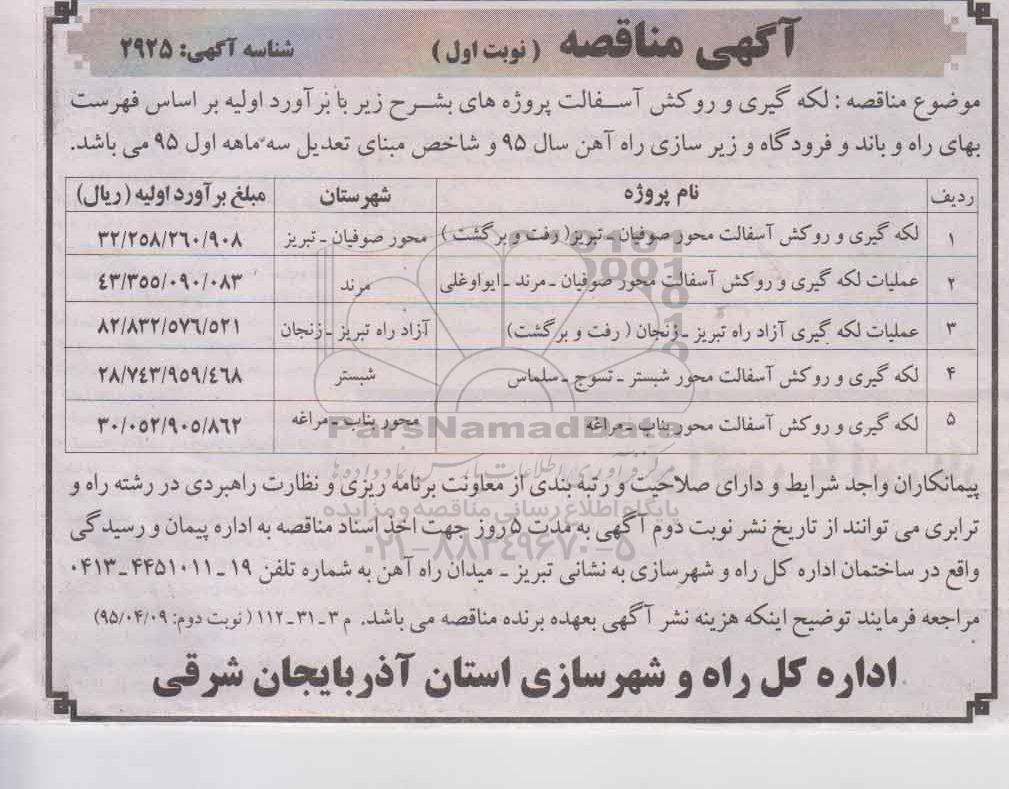 آگهی مناقصه (نوبت اول) شناسه آگهی: ۲۹۲۵
موضوع مناقصه : لکه گیری و روکش آسفالت پروژه های بشرح زیر با برآورد اولیه بر اساس فهرست
بهای راه و باند و فرودگاه و زیر سازی راه آهن سال ۹۵ و شاخص مبنای تعدیل سه ماهه اول ۹۵ می باشد.
ردیف نام پروژه شهرستان مبلغ برآورد اولیه (ریال)
۱ لکه گیری و روکش آسفالت محور صوفیان ـ تبریز( رفت و برگشت ) محور صوفیان ـ تبریز ۳۲/۲۵۸/۲۶۰/۹۰۸
۲ عملیات لکه گیری و روکش آسفالت محور صوفیان ـ مرند ـ ایواوغلی مرند ۴۳/۳۵۵/۰۹۰/۰۸۳
۳ عملیات لکه گیری آزاد راه تبریز ـ زنجان ( رفت و برگشت) آزاد راه تبریز ـ زنجان ۸۲/۸۳۲/۵۷۶/۵۲۱
۴ لکه گیری و روکش آسفالت محور شبستر ـ تسوج ـ سلماس شبستر ۲۸/۷۴۳/۹۵۹/۴۶۸
۵ لکه گیری و روکش آسفالت محور بناب ـ مراغه محور بناب ـ مراغه ۳۰/۰۵۲/۹۰۵/۸۶۲
ParsNamadData
مرکز فرآوری اطلاعات پارس نماد داده ها
پیمانکاران واجد شرایط و دارای صلاحیت و رتبه بندی از معاونت برنامه ریزی و نظارت راهبردی در رشته راه و
پایگاه اطلاع رسانی مناقصه و مزایده
ترابری می توانند از تاریخ نشر نوبت دوم آگهی به مدت ۵ روز جهت اخذ اسناد مناقصه به اداره پیمان و رسیدگی
۰۲۱-۸۸۳۴۹۶۷۰-۵
واقع در ساختمان اداره کل راه و شهرسازی به نشانی تبریز ـ میدان راه آهن به شماره تلفن ۱۹ ـ ۴۴۵۱۰۱۱ ـ ۰۴۱۳
مراجعه فرمایند توضیح اینکه هزینه نشر آگهی بعهده برنده مناقصه می باشد. م ۳ ـ ۳۱ ـ ۱۱۲ ( نوبت دوم: ۹۵/۰۴/۰۹)
اداره کل راه و شهرسازی استان آذربایجان شرقی